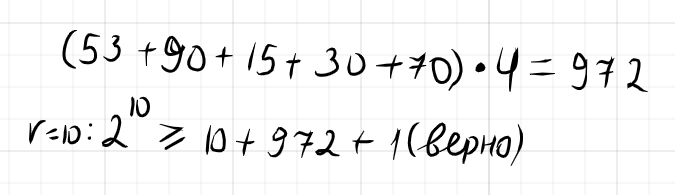 (53+90+15+30+70)·4=972
r=10: 2^10 ⩾ 10+972+1 (верно)